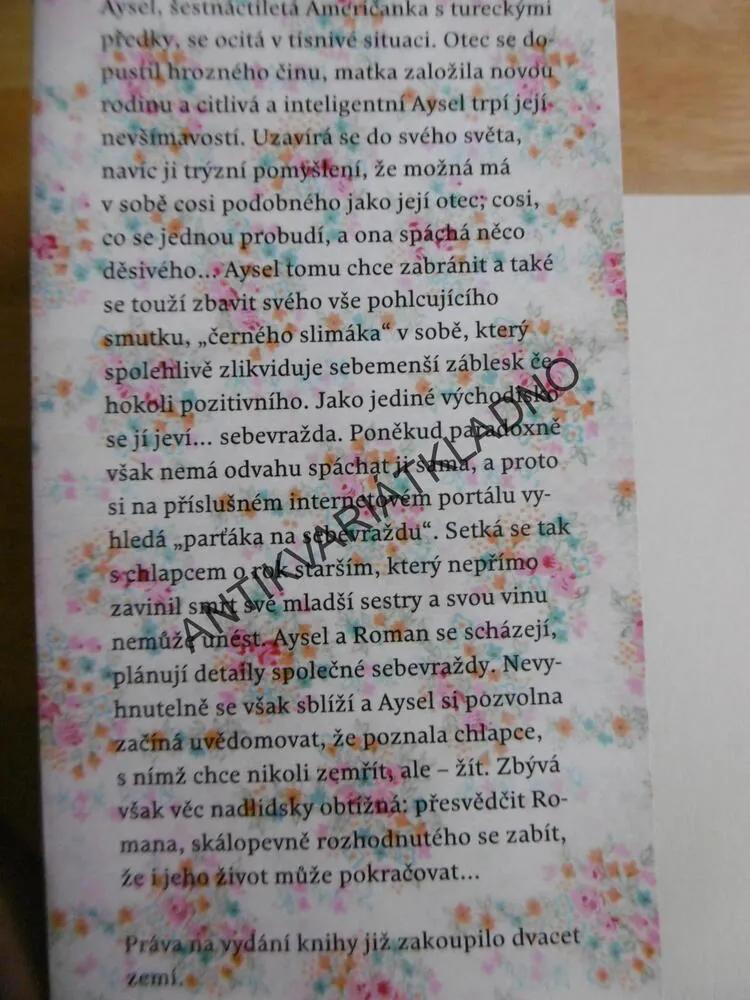 Aysel, šestnáctiletá Američanka s tureckými
předky, se ocitá v tísnivé situaci. Otec se do-
pustil hrozného činu, matka založila novou
rodinu a citlivá a inteligentní Aysel trpí její
nevšímavostí. Uzavírá se do svého světa,
navíc ji trýzní pomyšlení, že možná má
v sobě cosi podobného jako její otec; cosi,
co se jednou probudí, a ona spáchá něco
děsivého... Aysel tomu chce zabránit a také
se touží zbavit svého vše pohlcujícího
smutku, „černého slimáka“ v sobě, který
spolehlivě zlikviduje sebemenší záblesk če-
hokoli pozitivního. Jako jediné východisko
se jí jeví... sebevražda. Poněkud paradoxně
však nemá odvahu spáchat ji sama, a proto
si na příslušném internetovém portálu vy-
hledá „parťáka na sebevraždu“. Setká se tak
s chlapcem o rok starším, který nepřímo
zavinil smrt své mladší sestry a svou vinu
nemůže unést. Aysel a Roman se scházejí,
plánují detaily společné sebevraždy. Nevy-
hnutelně se však sblíží a Aysel si pozvolna
začíná uvědomovat, že poznala chlapce,
s nímž chce nikoli zemřít, ale – žít. Zbývá
však věc nadlidsky obtížná: přesvědčit Ro-
mana, skálopevně rozhodnutého se zabít,
že i jeho život může pokračovat...
Práva na vydání knihy již zakoupilo dvacet
zemí.
ANTIKVARIÁTKLADNO